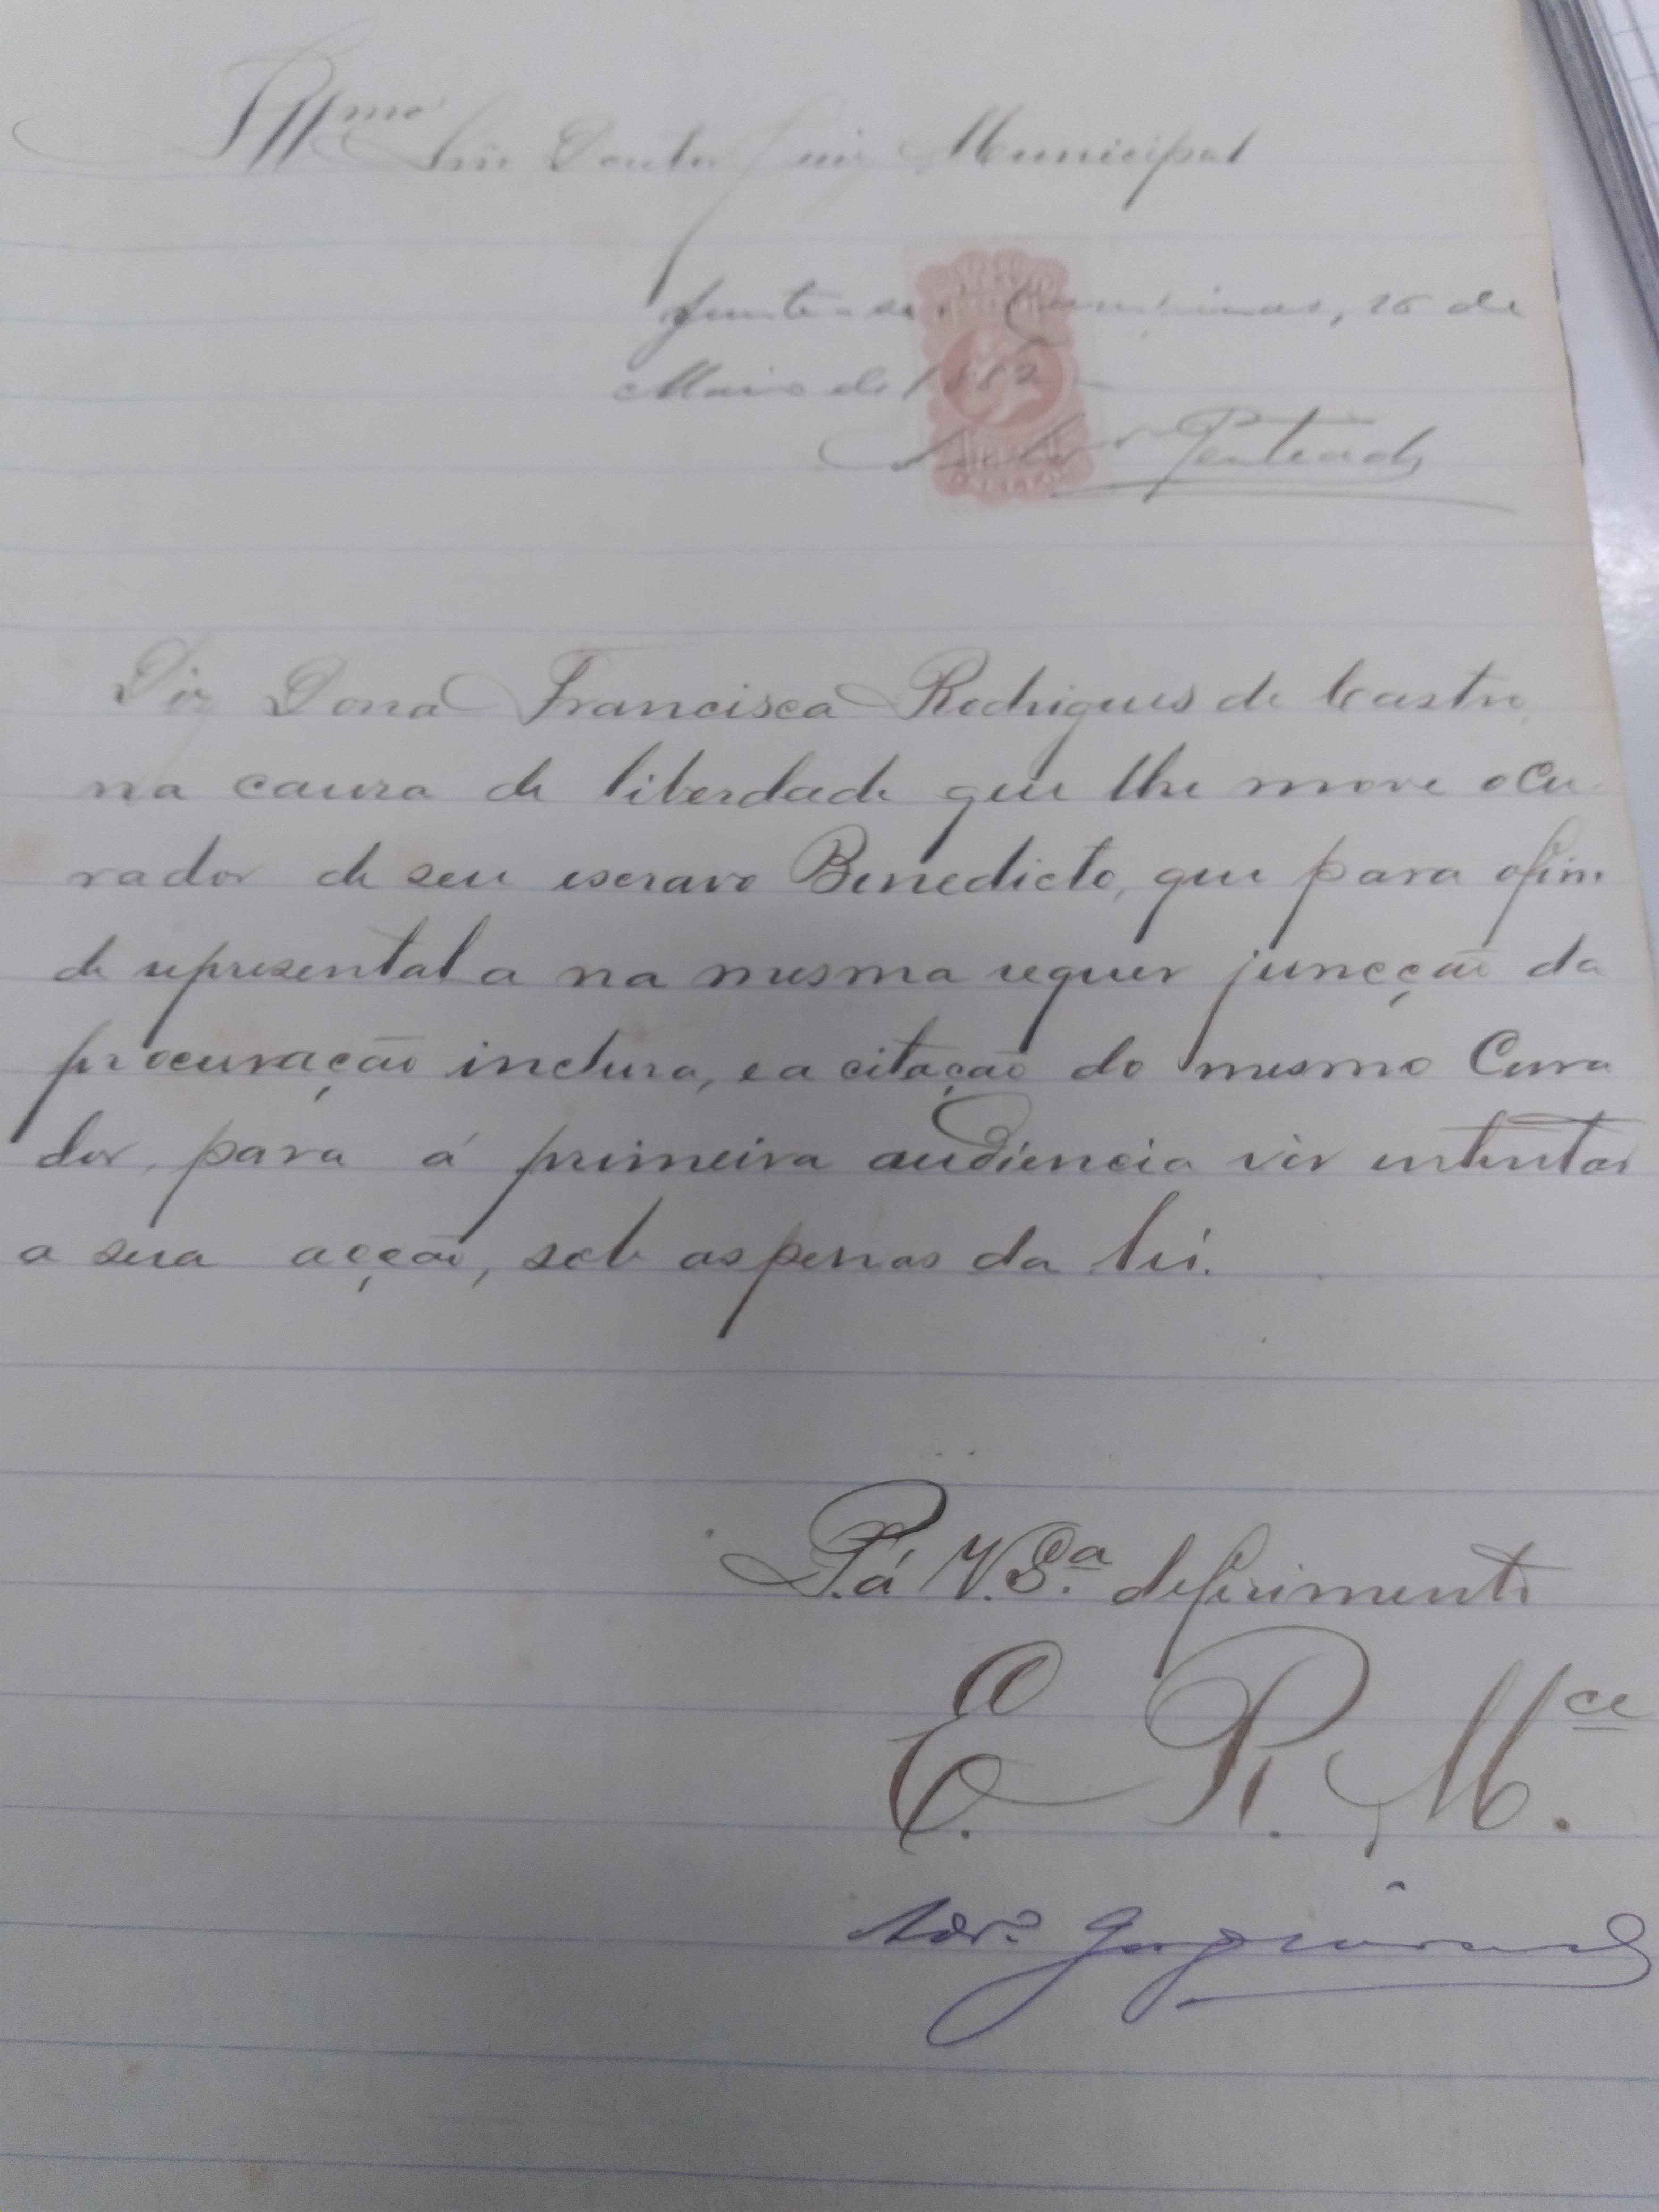 Illmo Snr Doutor Juiz Municipal
Junte-se. Campinas, 16 de
Maio de 1882
Penteado
Diz Dona Francisca Rodrigues de Castro,
na causa de liberdade que lhe move o Cu
rador de seu escravo Benedicto, que para o fim
de represental a na mesma requer juncção da
procuração inclusa, e a citação do mesmo Cura
dor, para á primeira audiencia vir intentar
a sua acção, sob as penas da lei.
P. á V. S.a deferimento
E. R. M.ce
Adv.o